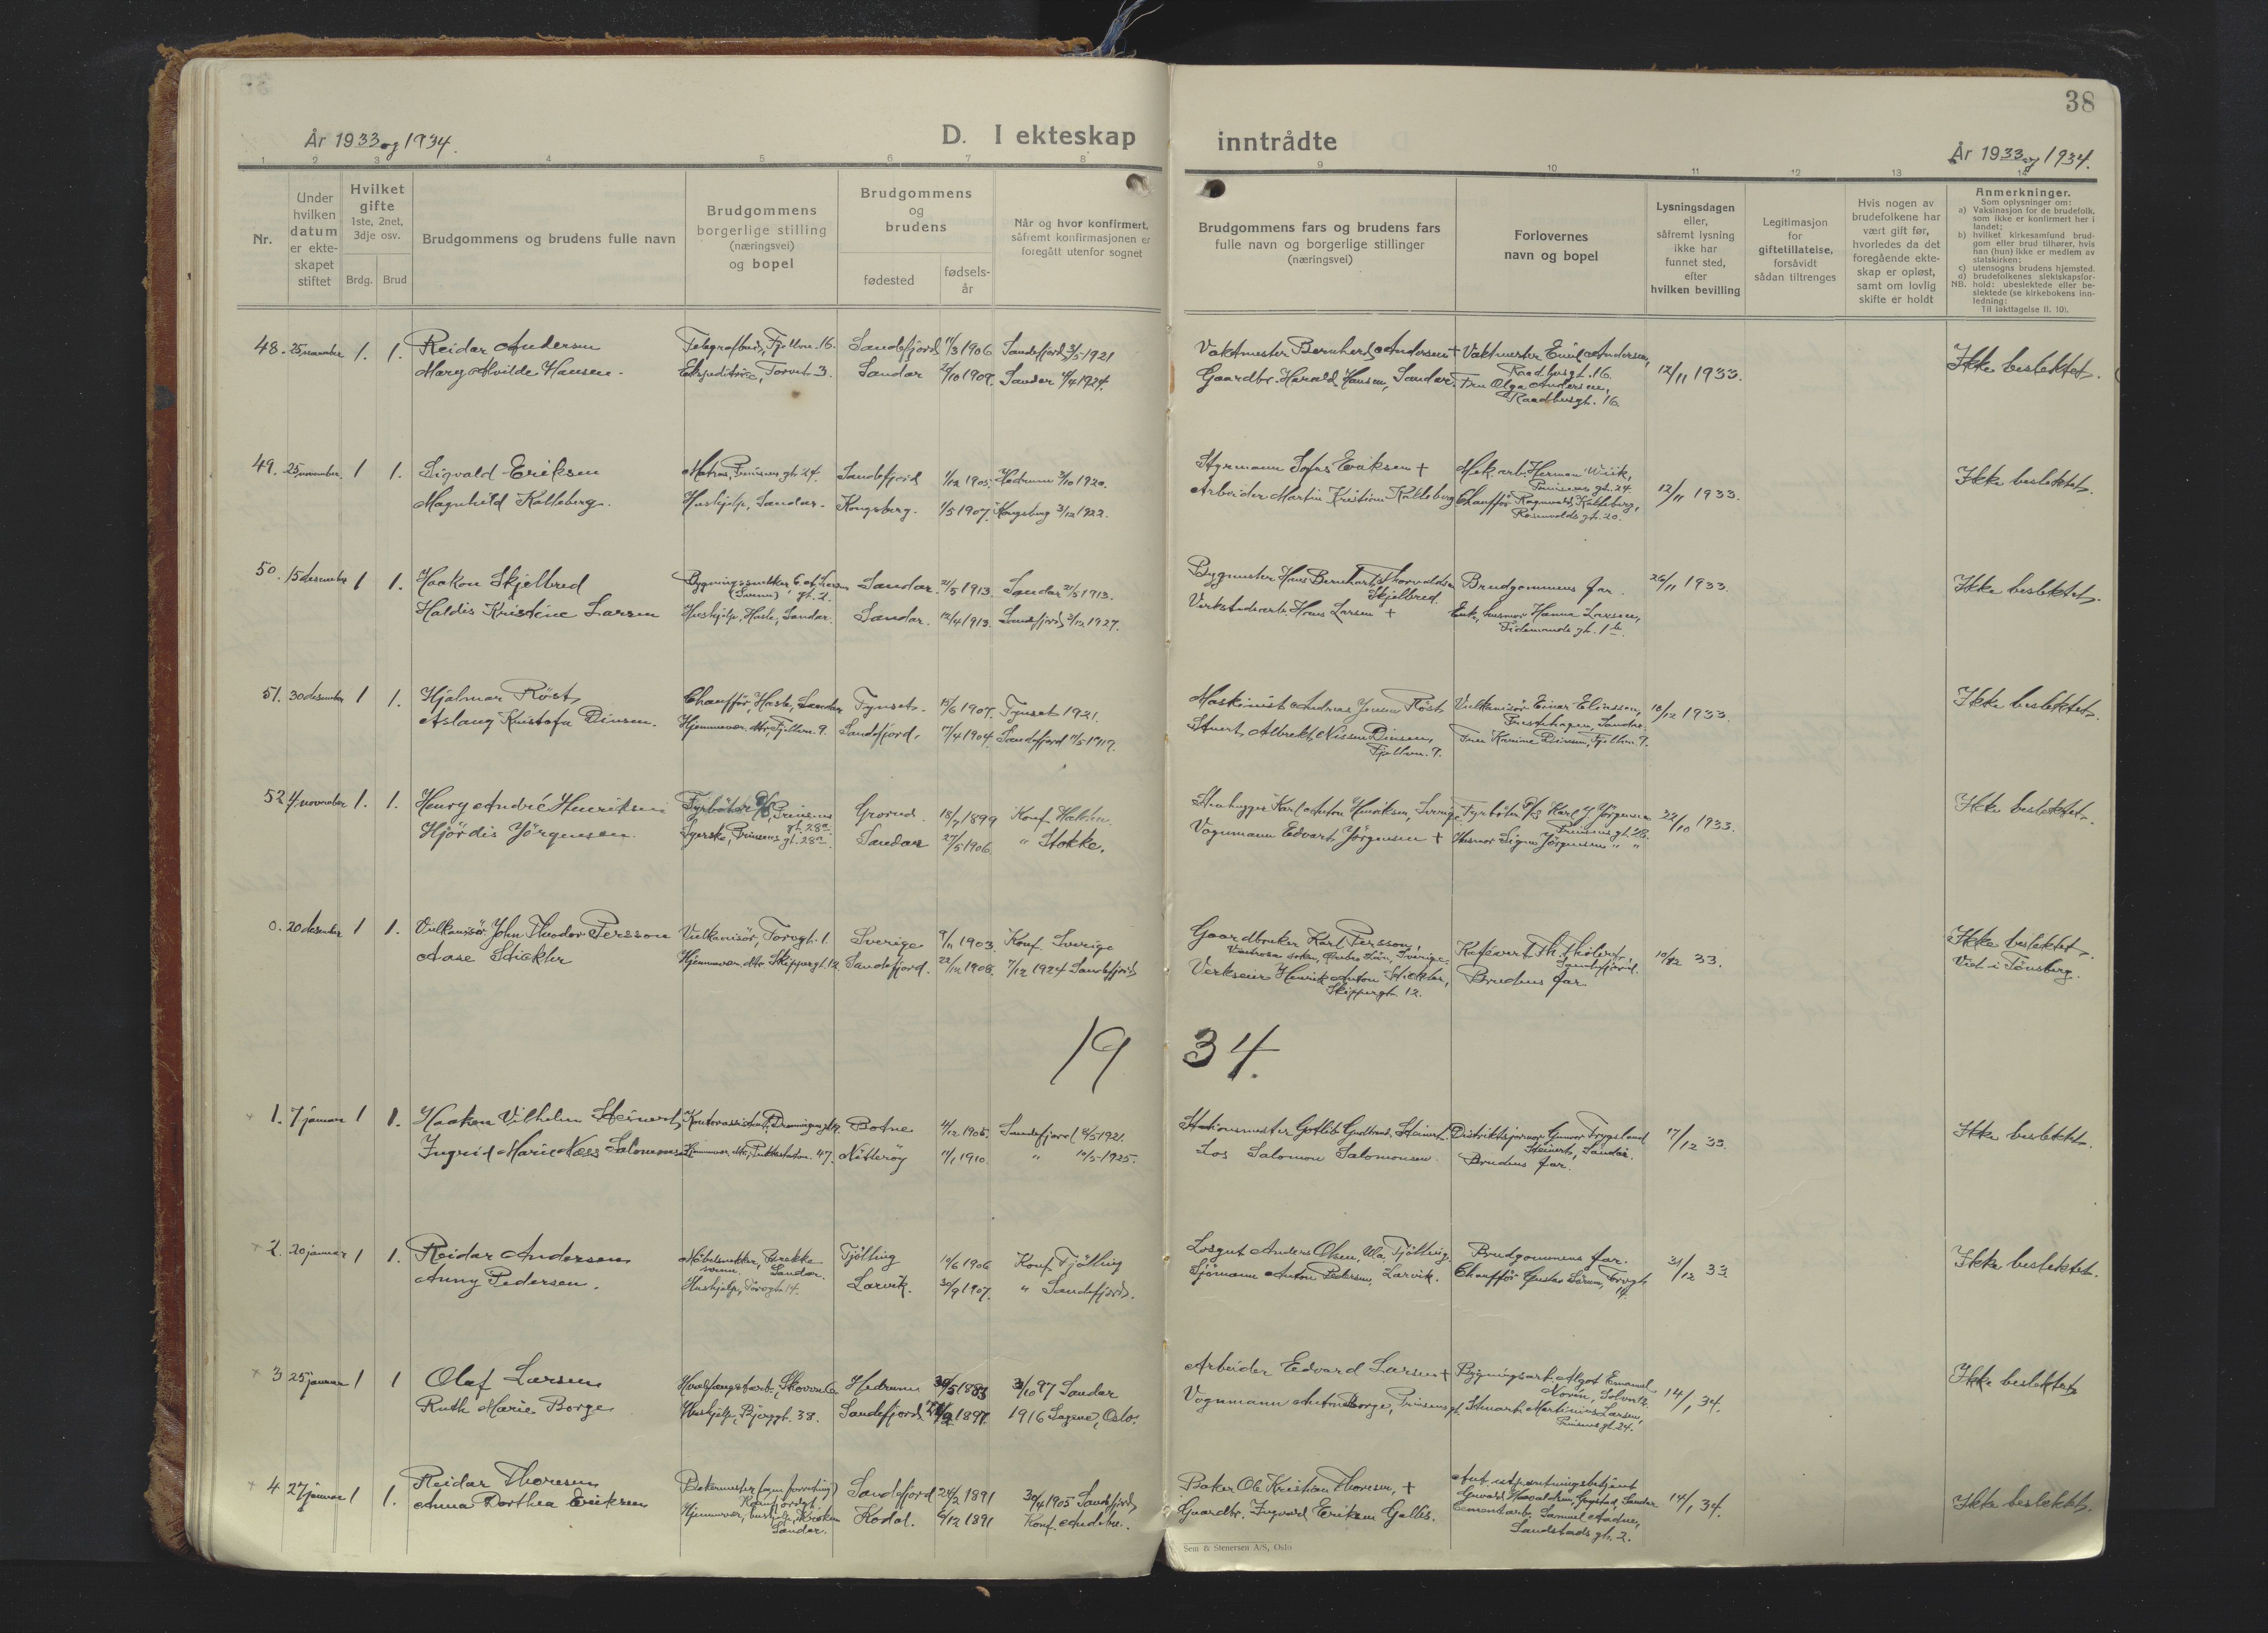 38
År 1933 og 1934.
D. I ekteskap inntrådte
År 1933 og 1934.
1 2 3 4 5 6 7 8 9 10 11 12 13 14
Nr.
Under hvilken datum er ekteskapet stiftet
Hvilket gifte 1ste, 2net, 3dje osv.
Brdg. Brud
Brudgommens og brudens fulle navn
Brudgommens borgerlige stilling (næringsvei) og bopel
Brudgommens og brudens
fødested
fødselsår
Når og hvor konfirmert, såfremt konfirmasjonen er foregått utenfor sognet
Brudgommens fars og brudens fars fulle navn og borgerlige stillinger (næringsvei)
Forlovernes navn og bopel
Lysningsdagen eller, såfremt lysning ikke har funnet sted, efter hvilken bevilling
Legitimasjon for giftetillatelse, forsåvidt sådan tiltrenges
Hvis nogen av brudefolkene har vært gift før, hvorledes da det foregående ekteskap er opløst, samt om lovlig skifte er holdt
Anmerkninger.
Som oplysninger om:
a) Vaksinasjon for de brudefolk, som ikke er konfirmert her i landet;
b) hvilket kirkesamfund brudgom eller brud tilhører, hvis han (hun) ikke er medlem av statskirken;
c) utensogns brudens hjemsted.
d) brudefolkenes slektskapsforhold: ubeslektede eller beslektede (se kirkebokens innledning:
NB. Til iakttagelse II. 10).
48. 25 november 1. 1. Reidar Andersen Telegrafbud, Fjellvn. 16. Sandefjord 11/3 1906 Sandefjord 3/5 1921 Vaktmester Bernhard Andersen + Vaktmester Emil Andersen, Raadhusgt. 16. 12/11 1933. Ikke beslektet.
Mary Alvilde Hansen. Ekspeditrice, Torvet 3. Sandar 1909. Sandar 1924. Gaardbr. Harald Hansen, Sandar. Fru Olga Andersen, Raadhusgt. 16.
49. 25 november 1 1. Sigvald Eriksen Matros, Prinsens gt. 24. Sandefjord 1/12 1905. Hedrum 3/10 1920. Styrmann Sofus Eriksen + Mek. arb. Herman Wiik, Prinsens gt. 24. 12/11 1933. Ikke beslektet.
Magnhild Kolleberg. Hushjelp, Sandar. Kongsberg. 1/5 1907. Kongsberg 3/12 1922. Arbeider Martin Kristian Kolleberg Chauffør Ragnvald Kolleberg, gt. 20.
50. 15 desember 1 1. Haakon Skjelbred Bygningssnekker (Svenn) Sandar. 21/5 1913. Sandar 21/5 1913. Bygmester Hans Bernhart Thorvaldsen Skjelbred. Brudgommens far. 26/11 1933. Ikke beslektet.
Haldis Kristine Larsen Hushjelp, Hasle, Sandar. Sandar. 12/4 1913. Sandefjord 2/12 1927. Verkstedarb. Hans Larsen + Enke, husmor Hanna Larsen, Tidemands gt. 1 b.
51. 30 desember 1 1. Hjalmar Röst Chauffør, Hasle, Sandar Tynset. 15/6 1907. Tynset 1921. Maskinist Andreas Jensen Röst Vulkanisör Einar Eliassen, Prestehagen, Sandar. 10/12 1933. Ikke beslektet.
Aslaug Kristofa Dinsen. Hjemmevær. dtr., Fjellvn. 9. Sandefjord. 17/4 1904. Sandefjord 11/5 1919. Stuert Albrekt Nissen Dinsen, Fjellvn. 9. Fru Karine Dinsen, Fjellvn. 9.
52 4 november 1. 1. Henry André Henriksen Fyrbøter, Prinsens gt. 28a. Grorud. 18/7 1899 Konf. Halden. Stenhugger Karl Anton Henriksen, Sverige. Fyrbøter Karl J Jörgensen Prinsens gt. 28. 22/10 1933. Ikke beslektet.
Hjördis Jörgensen. Syerske, Prinsens gt. 28a. Sandar 27/5 1906. " Stokke. Vognmann Edvart Jörgensen + Husmor Signe Jörgensen " "
0. 20 desember 1 1. Vulkanisør John Theodor Persson Vulkanisør, Torvgt. 1. Sverige 9/11 1903 Konf. Sverige Gaardbruker Karl Persson, Sverige. Kafévert Th. Sandefjord. 10/12 33. Ikke beslektet.
Aase Stickler Hjemmevær. dtr. Skippergt. 12. Sandefjord. 22/12 1908. 7/12 1924 Sandefjord Verkseier Henrik Anton Stickler, Skippergt. 12. Brudens far. Viet i Tönsberg.
1934.
1. 7 januar 1 1. Haakon Vilhelm Steinert Kontorassistent, Botne 4/12 1905. Sandefjord 8/5 1921. Stationsmester Gotlib Gudbrand Steinert. Distriktsjormor Gunvor Frygslund Steinert, Sandar. 17/12 33. Ikke beslektet.
Ingrid Marie Næss Salomonsen Hjemmevær. dtr., 47. Nötteröy 11/1 1910. " 10/5 1925. Los Salomon Salomonsen. Brudens far.
2. 20 januar 1 1. Reidar Andersen Möbelsnekker, Brekke svenn. Sandar. Tjölling 10/6 1906 Konf. Tjölling Losgut Anders Olsen, Ula, Tjölling. Brudgommens far. 31/12 33. Ikke beslektet.
Anny Pedersen. Hushjelp, Torvgt. 14. Larvik. 30/9 1907. " Sandefjord. Sjömann Anton Pedersen, Larvik. Chauffør Gustav Sörum, Torvgt. 14.
3 25 januar 1 1 Olaf Larsen Hvalfangstarb., Skovvn. 6 Hedrum 30/5 1883 3/10 97 Sandar Arbeider Edvard Larsen + Bygningsarb. Algot Emanuel Norén, Solvn. 12. 14/1 34. Ikke beslektet
Ruth Marie Borge Hushjelp, Bjerggt. 38. Sandefjord. 1897. 1916 Sagene, Oslo. Vognmann Anton Borge, Prinsens gt. Stuert Martinius Larsen, Prinsens gt. 24.
4 27 januar 1 1. Reidar Thoresen Bakermester (egen forretning) Sandefjord 24/2 1891 30/4 1905 Sandefjord Baker Ole Kristian Thoresen, + Ant. utpantningsbetjent Haraldsen, Gogstad, Sandar 14/1 34. Ikke beslektet.
Anna Dorthea Eriksen Hjemmevær., hushjelp, Kroken Sandar. Kodal. 9/12 1891 Konf. Andebu. Gaardbr. Ingvard Eriksen Gallis. Cementarb. Samuel Aadne, Landstads gt. 2.
Sem & Stenersen A/S, Oslo